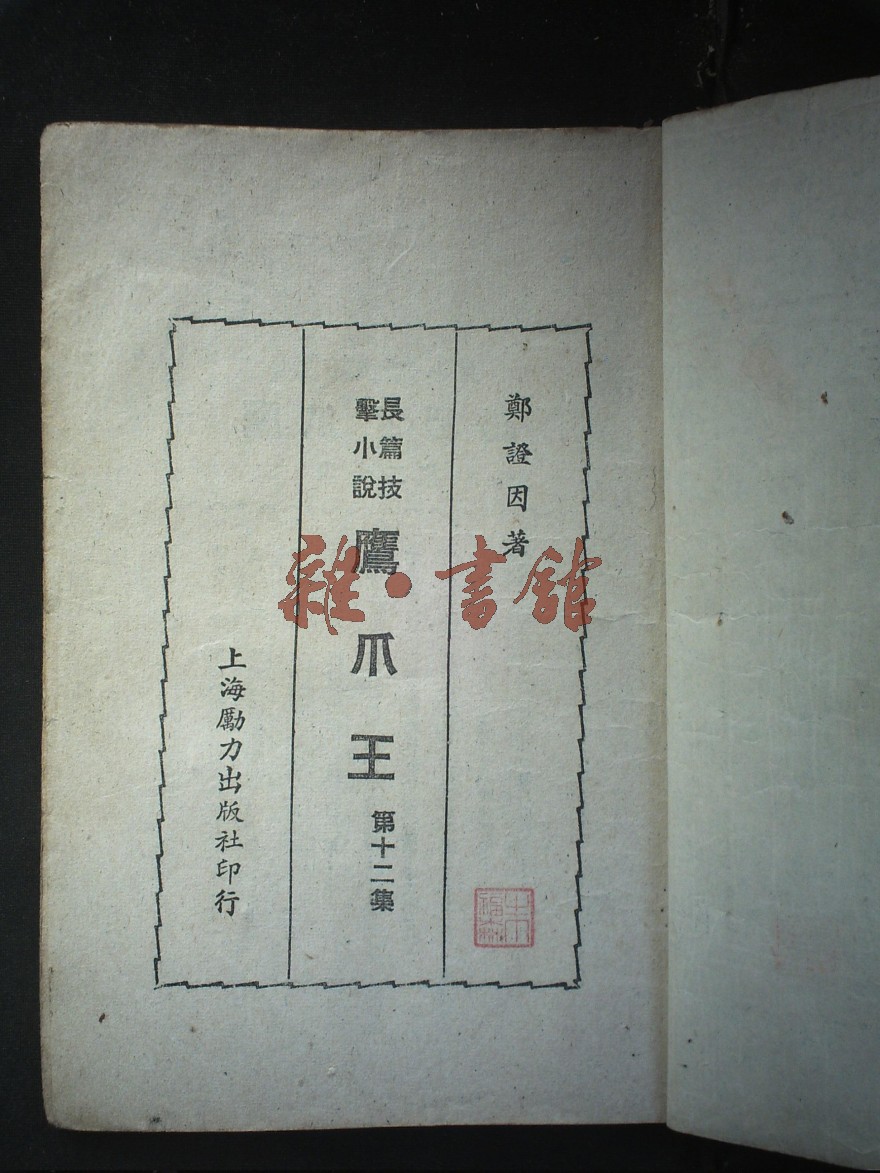 鄭證因著
長篇技
擊小說
鷹爪王
第十二集
上海勵力出版社印行
雜·書館